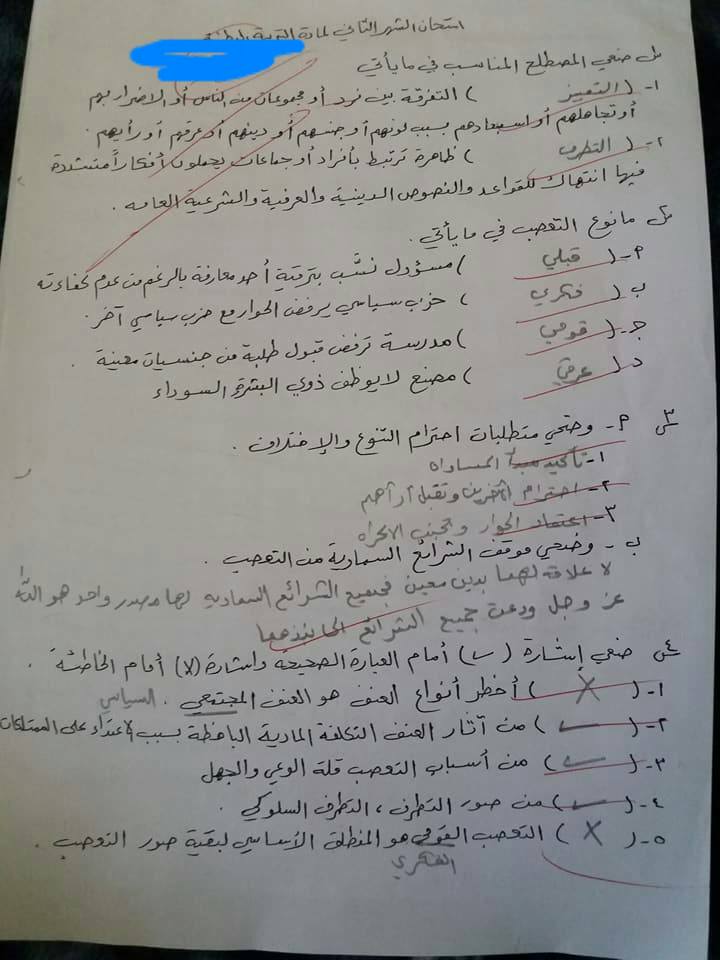 امتحان الشهر الثاني لمادة التربية
س١ ضعي المصطلح المناسب في ما يأتي
١- ( التمييز ) التفرقة بين فرد أو مجموعات من الناس أو الاضرار بهم
أو تجاهلهم أو استبعادهم بسبب لونهم أو جنسهم أو دينهم أو عرقهم أو رأيهم .
٢- ( التطرف ) ظاهرة ترتبط بأفراد أو جماعات يحملون أفكاراً متشددة
فيها انتهاك للقواعد والنصوص الدينية والعرفية والشرعية العامه .
س٢ ما نوع التعصب في ما يأتي .
أ- ( قبلي ) مسؤول نسَّب بترقية أحد معارفة بالرغم من عدم كفاءته
ب ( فكري ) حزب سياسي يرفض الحوار مع حزب سياسي آخر .
جـ- ( قومي ) مدرسة ترفض قبول طلبة من جنسيات معينة .
د- ( عرقي ) مصنع لا يوظف ذوي البشرة السوداء
س٣ أ- وضحي متطلبات احترام التنوع والإختلاف .
١- تأكيد مبدأ المساواه
٢- احترام الآخرين وتقبل آرآهم
٣- اعتماد الحوار وتجنب الاكراه
ب - وضحي موقف الشرائع السماوية من التعصب .
لا علاقة لهما بدين معين فجميع الشرائع السماويه لها مصدر واحد هو الله
عز وجل ودعت جميع الشرائع الى نبذهما
س٤ ضعي إشارة ( ✓ ) أمام العبارة الصحيحة واشارة (X) أمام الخاطئة .
١- ( X ) أخطر أنواع العنف هو العنف المجتمعي . السياسي
٢- ( ✓ ) من آثار العنف التكلفة المادية الباهظة بسبب الاعتداء على الممتلكات
٣- ( ✓ ) من أسباب التعصب قلة الوعي والجهل
٤- ( ✓ ) من صور التطرف ، التطرف السلوكي .
٥- ( X ) التعصب القومي هو المنطلق الأساسي لبقية صور التعصب .
الفكري